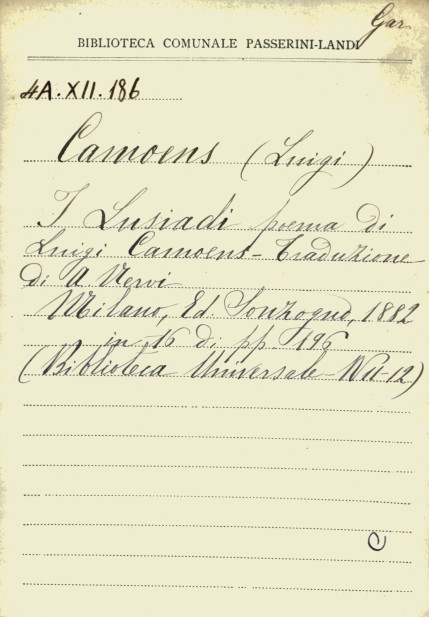 Gar
BIBLIOTECA COMUNALE PASSERINI-LANDI
4A.XII.186
Camoens (Luigi)
I Lusiadi poema di
Luigi Camoens - Traduzione
di A Nervi
Milano, Ed. Sonzogno, 1882
in 16 di pp. 196
(Biblioteca Universale - 11-12)
C